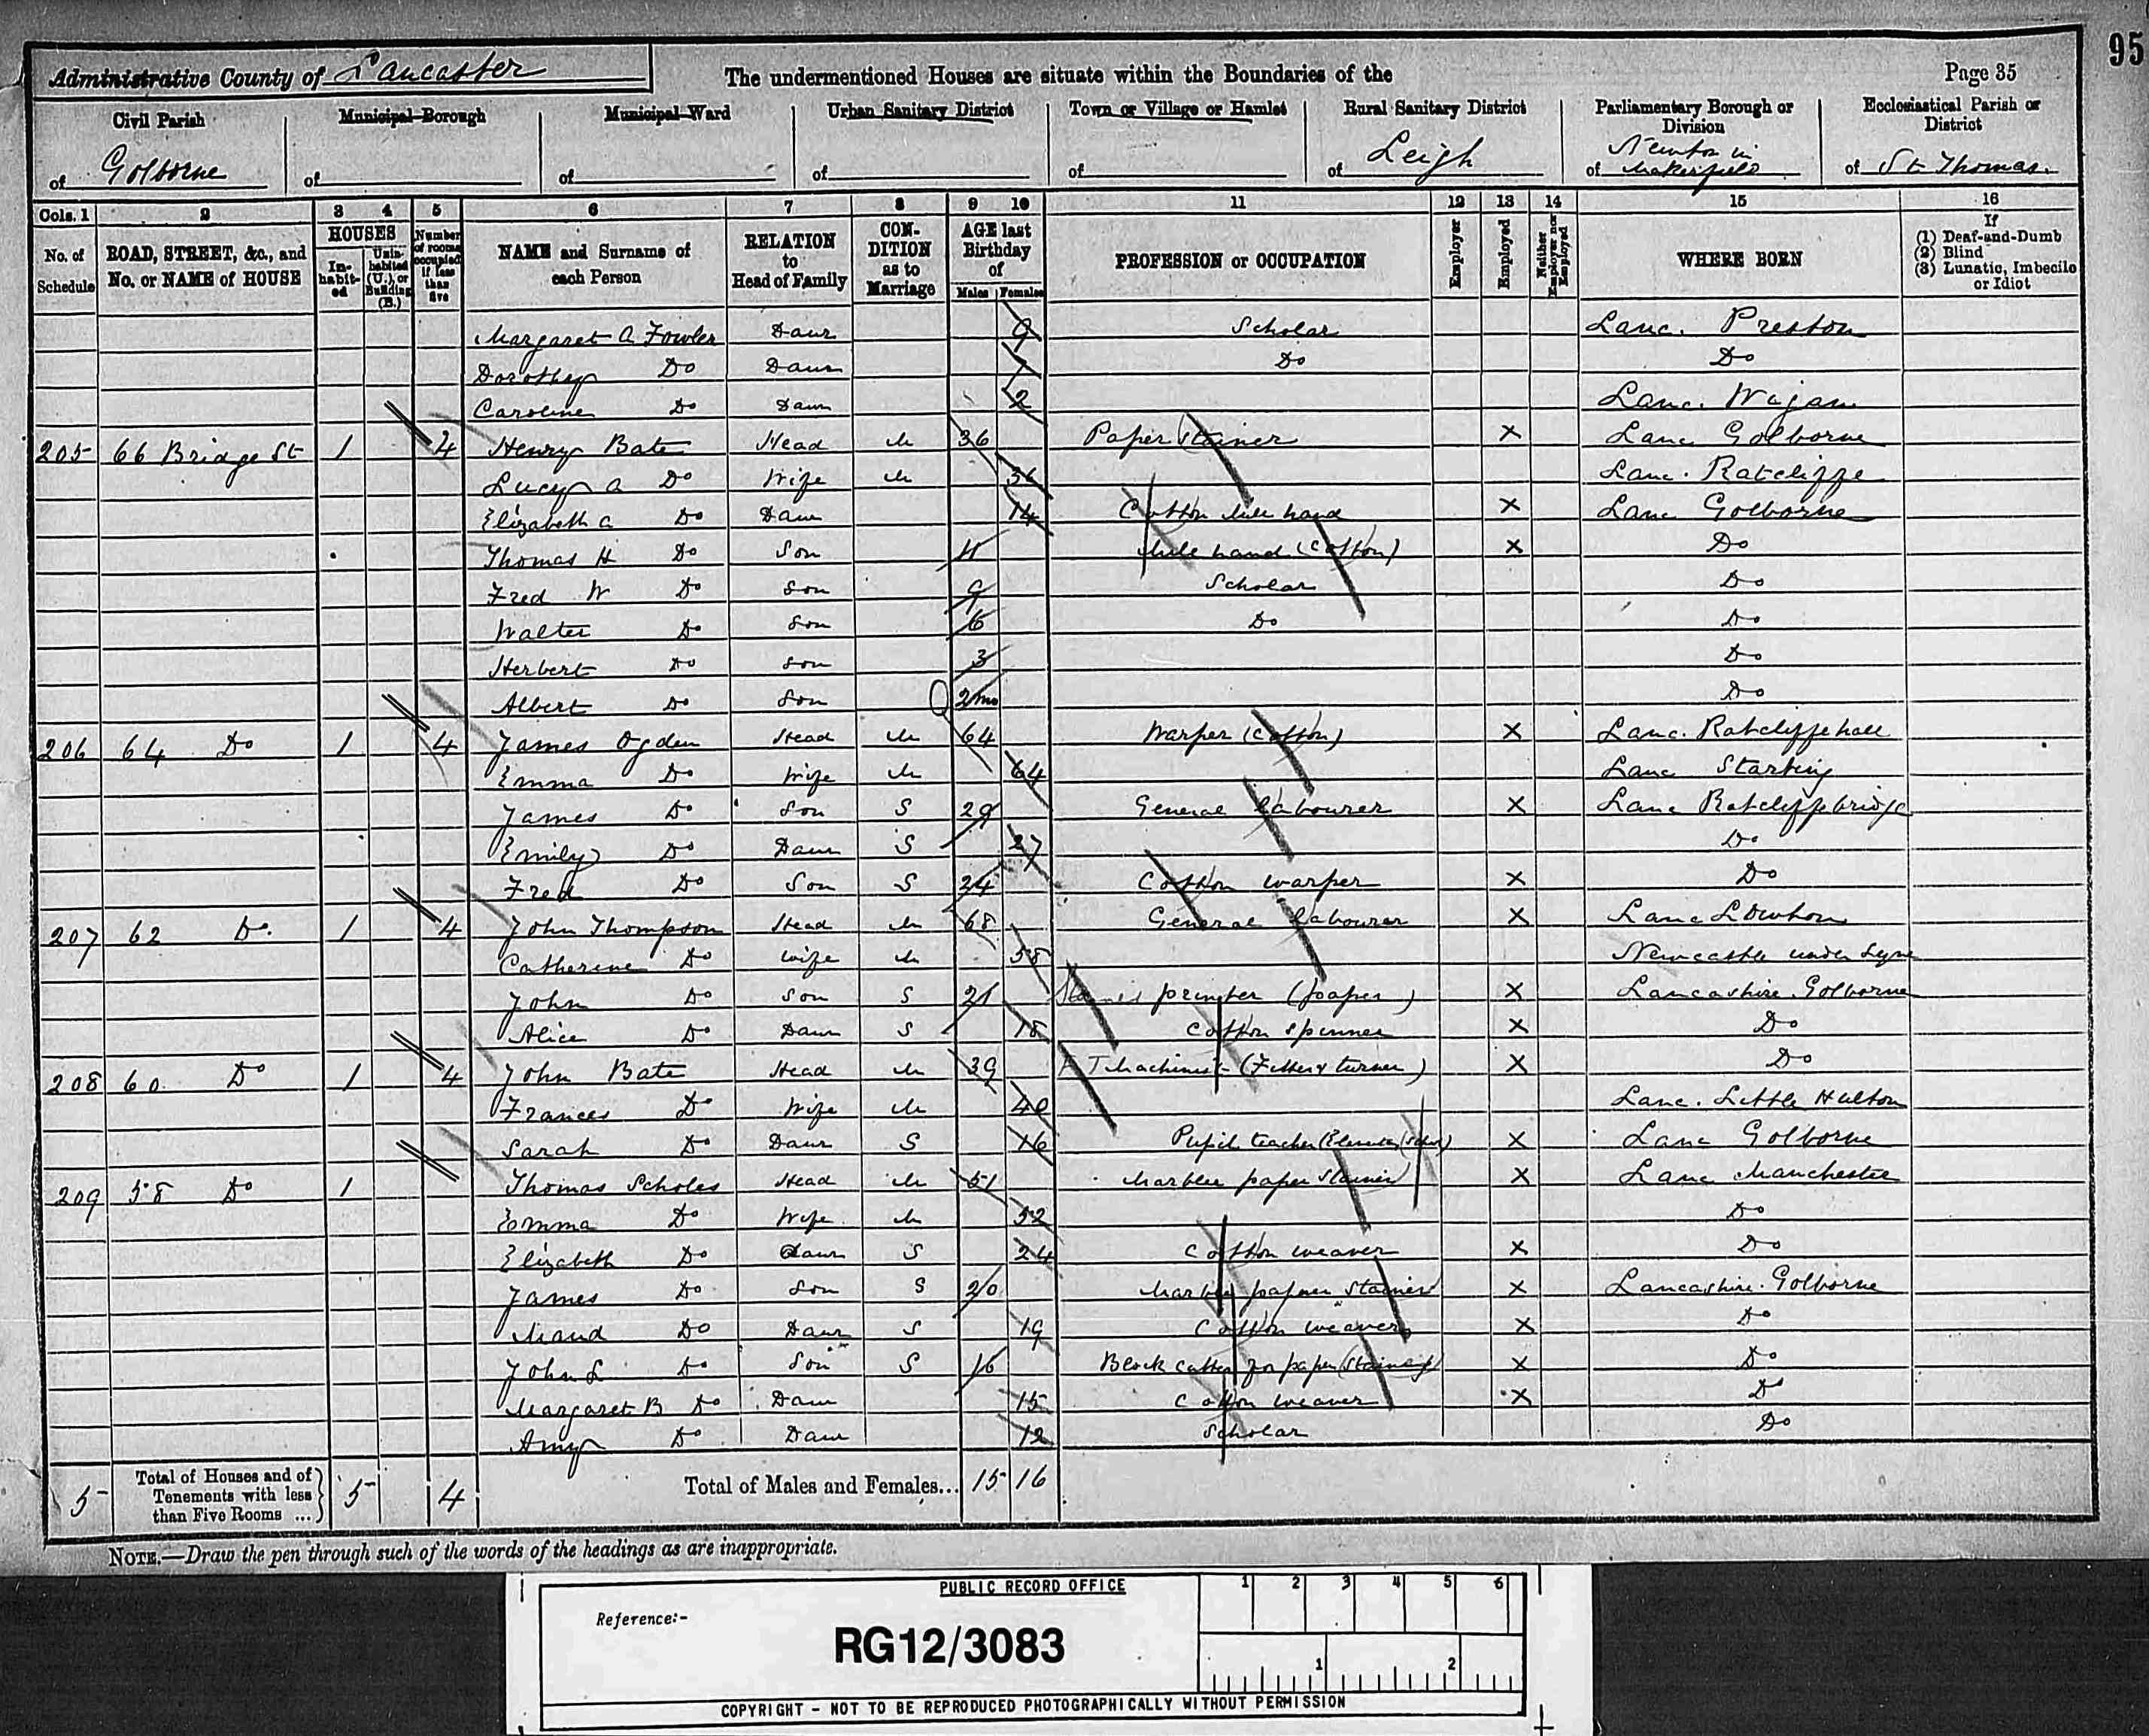 95
Administrative County of Lancaster The undermentioned Houses are situate within the Boundaries of the Page 35
Civil Parish of Golborne
Municipal Borough of
Municipal Ward of
Urban Sanitary District of
Town or Village or Hamlet of
Rural Sanitary District of Leigh
Parliamentary Borough or Division of Newton in Makerfield
Ecclesiastical Parish or District of St Thomas.
Cols. 1 2 3 4 5 6 7 8 9 10 11 12 13 14 15 16
No. of Schedule
ROAD, STREET, &c., and No. or NAME of HOUSE
HOUSES
In-habit-ed
Unin-habited (U.), or Building (B.)
Number of rooms occupied if less than five
NAME and Surname of each Person
RELATION to Head of Family
CON-DITION as to Marriage
AGE last Birthday of
Males Females
PROFESSION or OCCUPATION
Employer
Employed
Neither Employer nor Employed
WHERE BORN
If
(1) Deaf-and-Dumb
(2) Blind
(3) Lunatic, Imbecile or Idiot
Margaret A Fowler Daur 9 Scholar Lanc. Preston
Dorothy Do Daur 7 Do Do
Caroline Do Daur 2 Lanc. Wigan
205 66 Bridge St 1 4 Henry Bate Head M 36 Paper Stainer X Lanc Golborne
Lucy A Do Wife M Lanc. Ratcliffe
Elizabeth A Do Daur 14 Cotton Mill hand X Lanc Golborne
Thomas H Do Son 11 Mill hand (Cotton) X Do
Fred W Do Son 9 Scholar Do
Walter Do Son 6 Do Do
Herbert Do Son 3 Do
Albert Do Son 2mo Do
206 64 Do 1 4 James Ogden Head M 64 Warper (Cotton) X Lanc. Ratcliffe hall
Emma Do Wife M 64 Lanc
James Do Son S 29 General Labourer X Lanc Ratcliffebridge
Emily Do Daur S 27 Do
Fred Do Son S 24 Cotton warper X Do
207 62 Do. 1 4 John Thompson Head M 68 General Labourer X Lanc Lowton
Catherine Do Wife M 58 Newcastle under Lyne
John Do Son S 21 printer (paper) X Lancashire. Golborne
Alice Do Daur S 18 Cotton Spinner X Do
208 60 Do 1 4 John Bate Head M 39 Machinist (Fitter & turner) X Do
Frances Do Wife M 40 Lanc. Little Hulton
Sarah Do Daur S 16 Pupil teacher X Lanc Golborne
209 58 Do 1 Thomas Scholes Head M 51 Marble paper Stainer X Lanc Manchester
Emma Do Wife M 52 Do
Elizabeth Do Daur S 24 Cotton weaver X Do
James Do Son S 20 Marble paper Stainer X Lancashire. Golborne
Maud Do Daur S 19 Cotton weaver X Do
John L Do Son S 16 Block cutter for paper X Do
Margaret B Do Daur 15 Cotton weaver X Do
Amy Do Daur 12 Scholar Do
5 Total of Houses and of Tenements with less than Five Rooms ... 5 4 Total of Males and Females... 15 16
NOTE.—Draw the pen through such of the words of the headings as are inappropriate.
PUBLIC RECORD OFFICE
Reference:-
RG12/3083
1 2 3 4 5 6
1 2
COPYRIGHT - NOT TO BE REPRODUCED PHOTOGRAPHICALLY WITHOUT PERMISSION